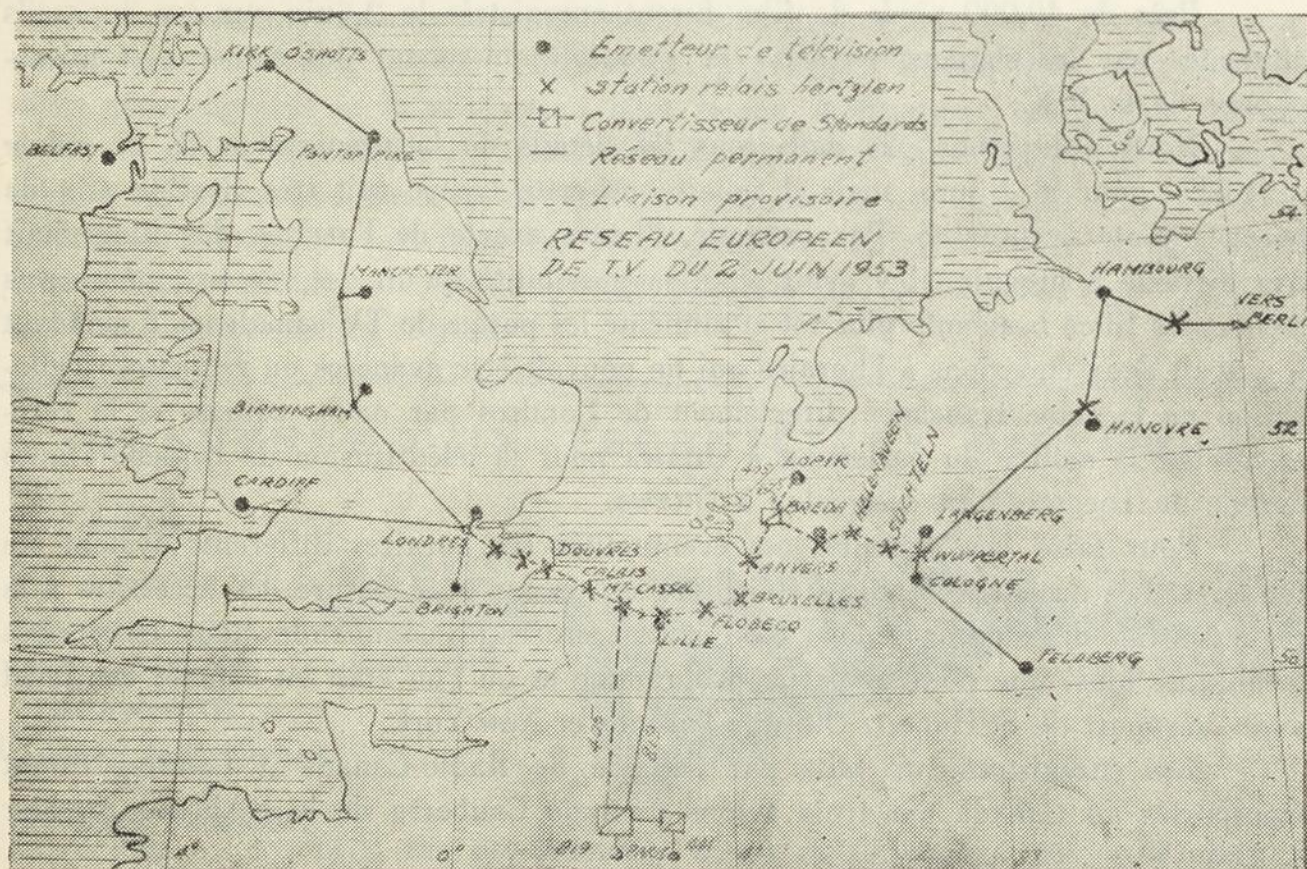 Emetteur de télévision
Station relais hertzien
Convertisseur de Standards
Réseau permanent
Liaison provisoire
RESEAU EUROPEEN
DE T.V. DU 2 JUIN 1953
KIRK O'SHOTTS
BELFAST
PONTOP PIKE
MANCHESTER
BIRMINGHAM
CARDIFF
LONDRES
BRIGHTON
DOUVRES
CALAIS
MT-CASSEL
LILLE
FLOBECQ
BRUXELLES
ANVERS
BREDA
LOPIK
SÜCHTELN
LANGENBERG
WUPPERTAL
COLOGNE
FELDBERG
HANOVRE
HAMBOURG
VERS
BERLI
54
52
50
405
819
819
4°
0°